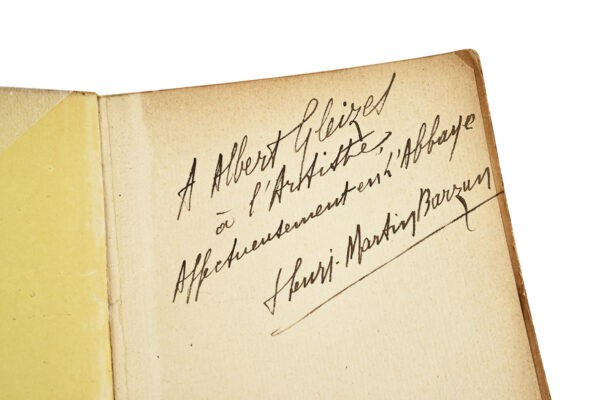 A Albert Gleizes
à l'Artiste,
Affectueusement en l'Abbaye
Henri-Martin Barzun